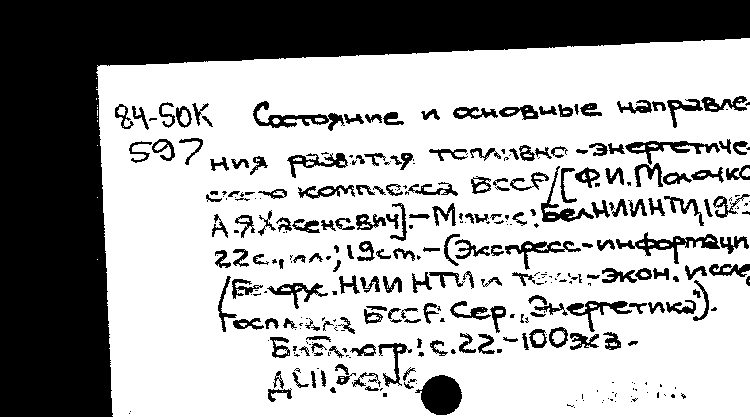 84-50К Состояние и основные направле-
597 ния развития топливно-энергетиче-
ского комплекса БССР/[Ф.И.Молочко
А.Я.Хасеневич].-Минск: БелНИИНТИ,
22с., ил.; 19см.-(Экспресс-информаци
/Белорус.НИИ НТИ и техн.-экон. исслед
Госплана БССР. Сер. „Энергетика").
Библиогр.: с.22.-100экз.-
ДСП. Экз.№6